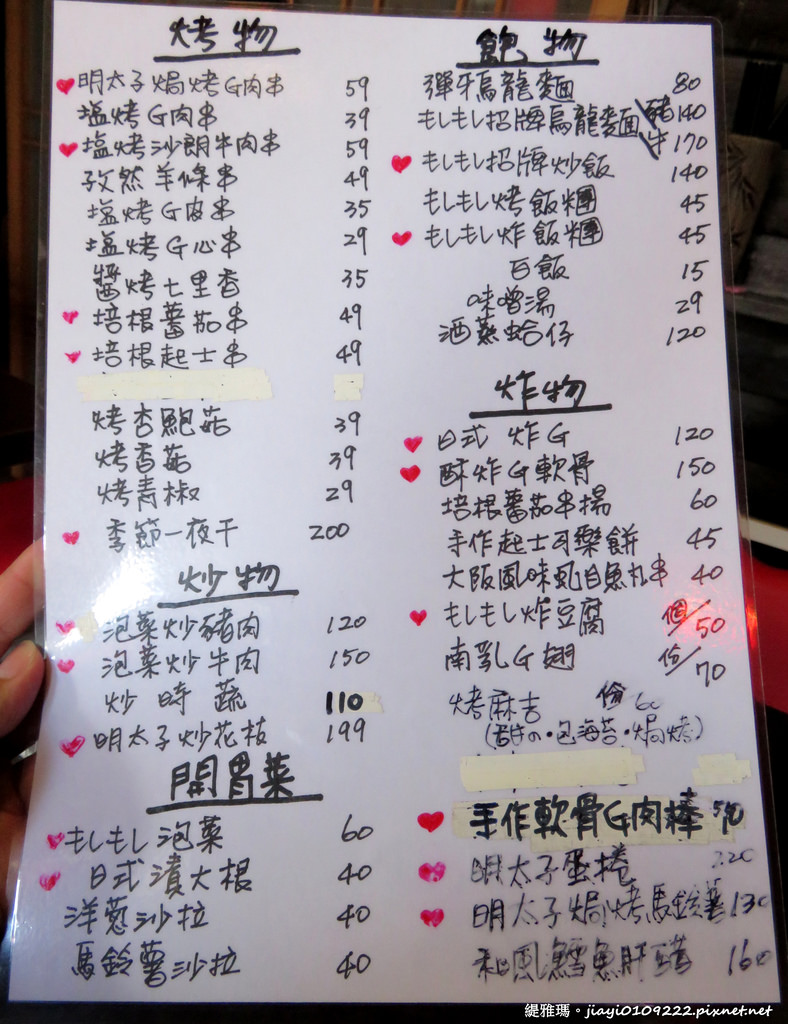 烤物
明太子焗烤G肉串 59
塩烤G肉串 39
塩烤沙朗牛肉串 59
孜然羊條串 49
塩烤G皮串 35
塩烤G心串 29
醬烤七里香 35
培根蕃茄串 49
培根起士串 49
烤杏鮑菇 39
烤香菇 39
烤青椒 29
季節一夜干 200
炒物
泡菜炒豬肉 120
泡菜炒牛肉 150
炒時蔬 110
明太子炒花枝 199
開胃菜
もしもし泡菜 60
日式漬大根 40
洋蔥沙拉 40
馬鈴薯沙拉 40
飽物
彈牙烏龍麵 80
もしもし招牌烏龍麵 豬140
牛170
もしもし招牌炒飯 140
もしもし烤飯糰 45
もしもし炸飯糰 45
白飯 15
味噌湯 29
酒蒸蛤仔 120
炸物
日式炸G 120
酥炸G軟骨 150
培根蕃茄串揚 60
手作起士可樂餅 45
大阪風味虱目魚丸串 40
もしもし炸豆腐 個/50
南乳G翅 份/70
烤麻吉 份 60
(甜の·包海苔·焗烤)
手作軟骨G肉棒
明太子蛋捲 220
明太子焗烤馬鈴薯 130
和風鱈魚肝 160
緹雅瑪。jiayi0109222.pixnet.net